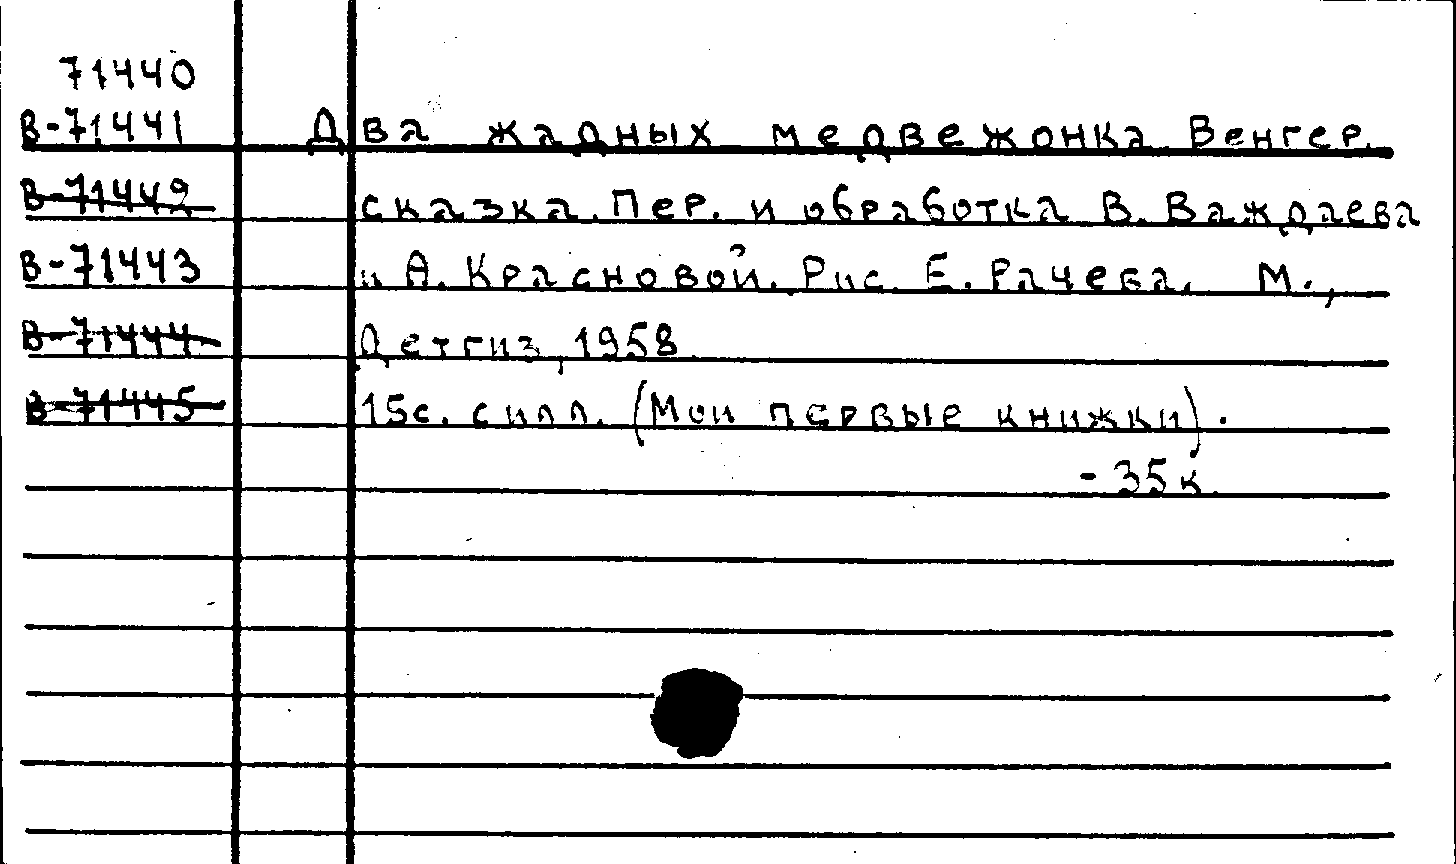 71440
В-71441 Два жадных медвежонка. Венгер.
В-71442 сказка. Пер. и обработка В. Важдаева
В-71443 и А. Красновой. Рис. Е. Рачева. М.,
В-71444 Детгиз, 1958
В-71445 15с. силл. (Мои первые книжки).
- 35к.